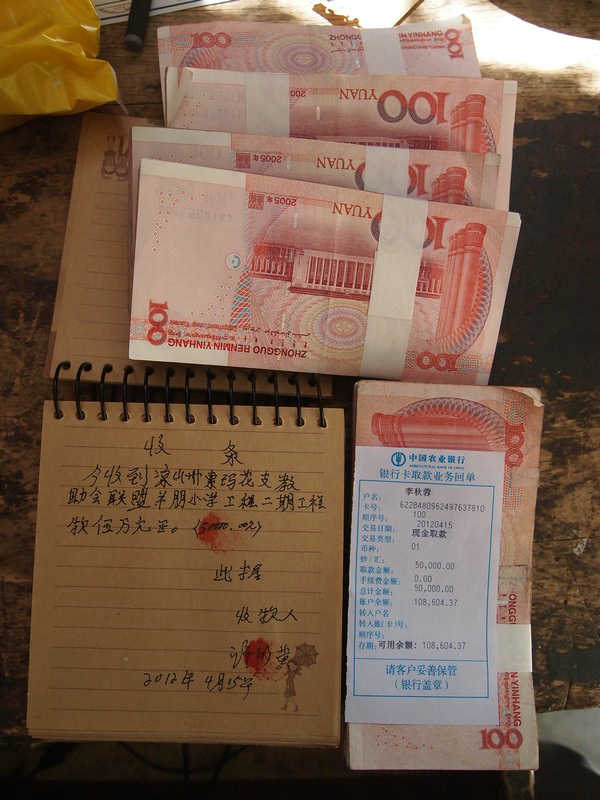 100
ZHONGGUO
100
YUAN
200
100
YUAN
2005年
100
YUAN
2005年
100
ZHONGGUO RENMIN YINHANG
100
收 条
今收到凉山州索玛花支教
助会联盟羊朋小学工程二期工程
款伍万元正。(50000.00元)
此据
收款人
2012年4月15号
中国农业银行
AGRICULTURAL BANK OF CHINA
银行卡取款业务回单
户名: 李秋蓉
卡号: 6228480962497637810
顺序号: 100
交易日期: 20120415
交易类型: 现金取款
币种: 01
钞/汇:
取款金额: 50,000.00
手续费金额: 0.00
总计金额: 50,000.00
账户余额: 108,604.37
转入户名:
转入账(卡)号:
顺序号:
存期: 可用余额: 108,604.37
请客户妥善保管
(银行盖章)
100
N YINHANG
100